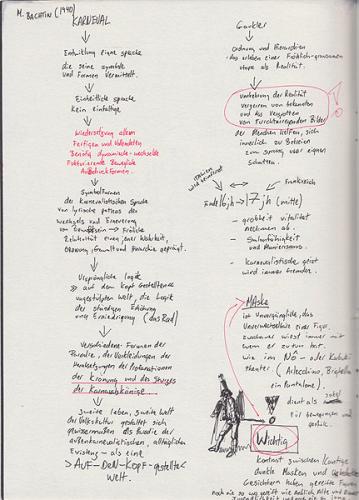 M. BACHTIN (1940)
KARNEVAL
Entwicklung eigne sprache
die seine symbole
und Formen vermittelt.
Einheitliche sprache
Kein einfältige
Wiedersetzung allem
Fertigen und Vollendeten
Benötig dynamische-wechselde
Fluktuirende Bewegliche
Ausdruckformen.
Symbolformen
der Karnevalistischen Sprache
von lyrische pathos des
wechsels und Erneuerung
von
Relativität einen jener Wahrheit,
Ordnung, Gewalt und Hierarchie geprägt.
Ursprüngliche Logik
auf dem Kopf gestellten
ungestülpten Welt, die Logik
der ständigen Erhöhung
und Erniedrigung (das Rad)
Verschiedene Formen der
Parodie, der Verkleidungen der
Herabsetzungen der Profanationen
der Kronung und des Sturzes
der Karnevalskönige.
zweite leben, zweite Welt
der Volkskultur gestaltet sich
gewissermaßen als Parodie der
außerkarnevalistischen, alltäglichen
Existens - als eine
>AUF-DEN-KOPF-gestellte<
Welt.
Gaukler
Ordnung und Hierarchien
das erleben einer Fröhlich-grausamen
utopie als Realität.
umkehrung der Realität
vergessen von bekannten
und das Vergotten
von Furchterregenden Bilder
der Menschen Helfen, sich
innerlich zu Befreien
zum sprung über eigenen
schatten.
Italien
Frankreich
Ende 16jh → 17jh (mitte)
- großheit vitalität
nehmen ab.
-
und Manierismus.
- Karnevalistische geist
wird immer fremder.
MAske
ist Unvergängliche, das
Unverwechselbare einer Figur.
zuschauer wisst immer mit
wem er zu tun hat.
wie im Nô - oder Kabuki
theater (Arlecchino, Brighella
ein Pantalone).
dient als
für bewegungen und
gestik.
Wichtig
Kontrast zwischen
dunkle Masken und
Gesichtern haben